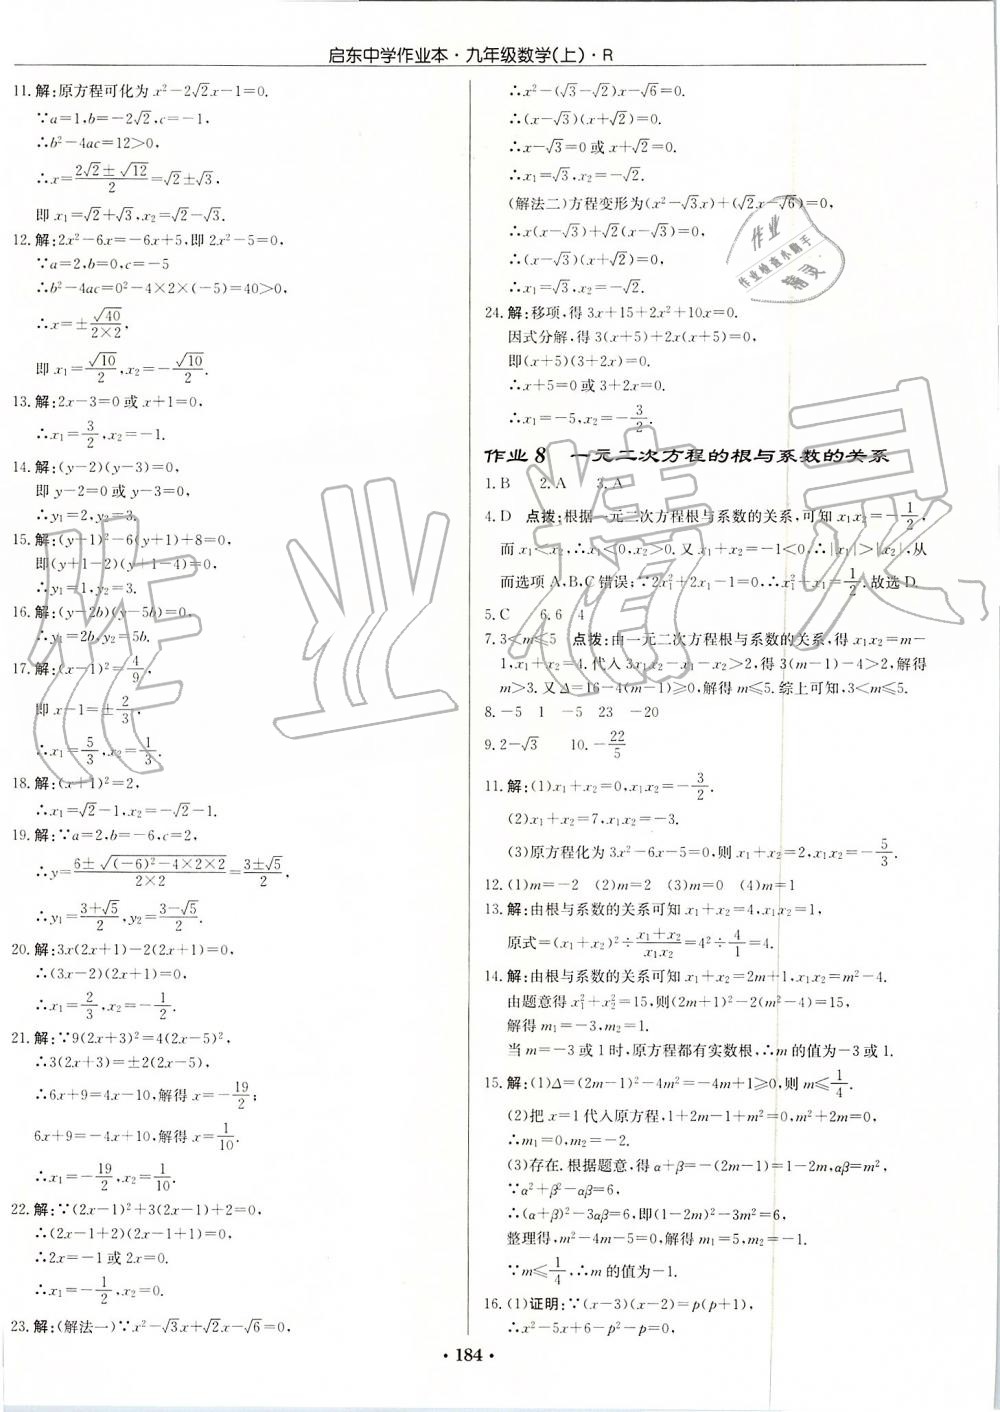 启东中学作业本·九年级数学(上)·R
11.解:原方程可化为 x²-2√2x-1=0.
∵a=1,b=-2√2,c=-1,
∴b²-4ac=12>0,
∴x=(2√2±√12)/2=√2±√3,
即 x₁=√2+√3,x₂=√2-√3.
12.解:2x²-6x=-6x+5,即 2x²-5=0,
∵a=2,b=0,c=-5
∴b²-4ac=0²-4×2×(-5)=40>0,
∴x=±√40/(2×2),
即 x₁=√10/2,x₂=-√10/2.
13.解:2x-3=0 或 x+1=0,
∴x₁=3/2,x₂=-1.
14.解:(y-2)(y-3)=0,
即 y-2=0 或 y-3=0,
∴y₁=2,y₂=3.
15.解:(y+1)²-6(y+1)+8=0,
即(y+1-2)(y+1-4)=0,
∴y₁=1,y₂=3.
16.解:(y-2b)(y-5b)=0,
∴y₁=2b,y₂=5b.
17.解:(x-1)²=4/9,
即 x-1=±2/3,
∴x₁=5/3,x₂=1/3.
18.解:(x+1)²=2,
∴x₁=√2-1,x₂=-√2-1.
19.解:∵a=2,b=-6,c=2,
∴y=(6±√((-6)²-4×2×2))/(2×2)=(3±√5)/2,
∴y₁=(3+√5)/2,y₂=(3-√5)/2.
20.解:3x(2x+1)-2(2x+1)=0,
∴(3x-2)(2x+1)=0,
∴x₁=2/3,x₂=-1/2.
21.解:∵9(2x+3)²=4(2x-5)²,
∴3(2x+3)=±2(2x-5),
∴6x+9=4x-10,解得 x=-19/2;
6x+9=-4x+10,解得 x=1/10.
∴x₁=-19/2,x₂=1/10.
22.解:∵(2x-1)²+3(2x-1)+2=0,
∴(2x-1+2)(2x-1+1)=0,
∴2x=-1 或 2x=0.
∴x₁=-1/2,x₂=0.
23.解:(解法一)∵x²-√3x+√2x-√6=0,
∴x²-(√3-√2)x-√6=0.
∴(x-√3)(x+√2)=0.
∴x-√3=0 或 x+√2=0.
∴x₁=√3,x₂=-√2.
(解法二)方程变形为(x²-√3x)+(√2x-√6)=0,
∴x(x-√3)+√2(x-√3)=0,
∴(x-√3)(x+√2)=0.
∴x₁=√3,x₂=-√2.
24.解:移项,得 3x+15+2x²+10x=0.
因式分解,得 3(x+5)+2x(x+5)=0,
即(x+5)(3+2x)=0.
∴x+5=0 或 3+2x=0.
∴x₁=-5,x₂=-3/2.
作业 8 一元二次方程的根与系数的关系
1.B 2.A 3.A
4.D 点拨:根据一元二次方程根与系数的关系,可知 x₁x₂=-1/2,
而 x₁<x₂,∴x₁<0,x₂>0.又 x₁+x₂=-1<0,∴|x₁|>|x₂|,从
而选项 A、B、C 错误;∵2x₁²+2x₁-1=0,∴x₁²+x₁=1/2.故选 D.
5.C 6.6 4
7.3<m≤5 点拨:由一元二次方程根与系数的关系,得 x₁x₂=m-
1,x₁+x₂=4.代入 3x₁x₂-x₁-x₂>2,得 3(m-1)-4>2,解得
m>3.又Δ=16-4(m-1)≥0,解得 m≤5.综上可知,3<m≤5.
8.-5 1 -5 23 -20
9.2-√3 10.-22/5
11.解:(1)x₁+x₂=0,x₁x₂=-3/2.
(2)x₁+x₂=7,x₁x₂=-3.
(3)原方程化为 3x²-6x-5=0,则 x₁+x₂=2,x₁x₂=-5/3.
12.(1)m=-2 (2)m=2 (3)m=0 (4)m=1
13.解:由根与系数的关系可知 x₁+x₂=4,x₁x₂=1,
原式=(x₁+x₂)²÷(x₁+x₂)/(x₁x₂)=4²÷4/1=4.
14.解:由根与系数的关系可知 x₁+x₂=2m+1,x₁x₂=m²-4.
由题意得 x₁²+x₂²=15,则(2m+1)²-2(m²-4)=15,
解得 m₁=-3,m₂=1.
当 m=-3 或 1 时,原方程都有实数根,∴m 的值为-3 或 1.
15.解:(1)Δ=(2m-1)²-4m²=-4m+1≥0,则 m≤1/4.
(2)把 x=1 代入原方程,1+2m-1+m²=0,m²+2m=0,
∴m₁=0,m₂=-2.
(3)存在.根据题意,得 α+β=-(2m-1)=1-2m,αβ=m²,
∵α²+β²-αβ=6,
∴(α+β)²-3αβ=6,即(1-2m)²-3m²=6,
整理得,m²-4m-5=0,解得 m₁=5,m₂=-1.
∵m≤1/4,∴m 的值为-1.
16.(1)证明:∵(x-3)(x-2)=p(p+1),
∴x²-5x+6-p²-p=0,
·184·
作业
作业检查小助手
精灵
作业精灵